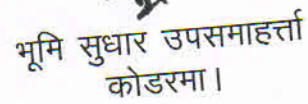 भूमि सुधार उपसमाहर्त्ता
कोडरमा।